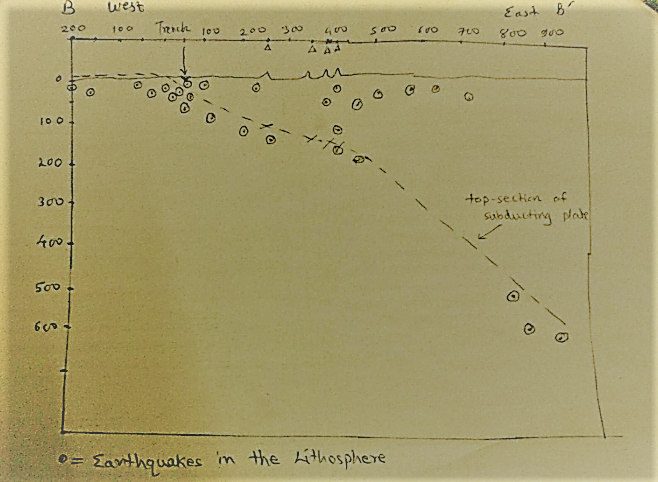 B West East B'
200 100 Trench 100 200 300 400 500 600 700 800 900
0
100
200
300
400
500
600
top-section of
subducting plate
= Earthquakes in the Lithosphere